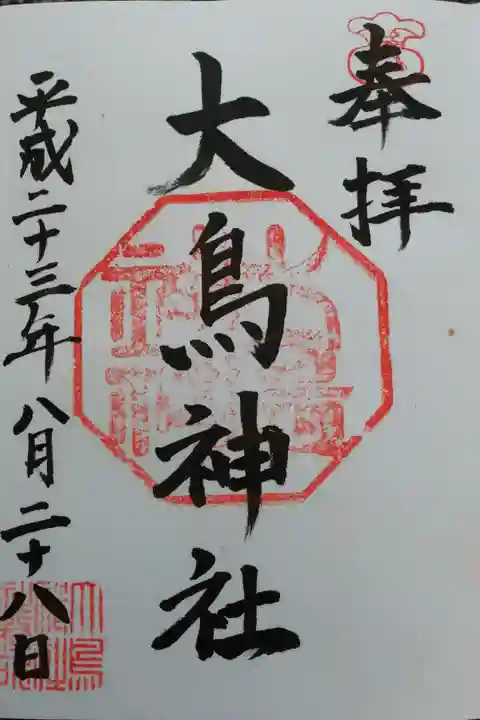 奉拝
大鳥神社
平成二十三年八月二十八日